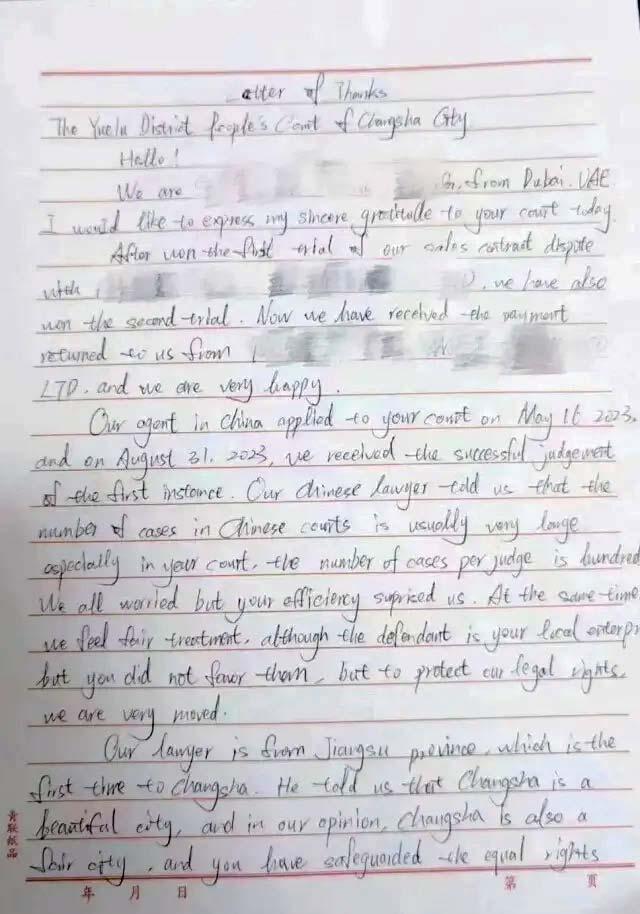 Letter of Thanks
The Yuelu District People's Court of Changsha City
Hello!
We are from Dubai. UAE
I would like to express my sincere gratitude to your court today.
After won the first trial of our sales contract dispute
with , we have also
won the second trial. Now we have received the payment
returned to us from
LTD. and we are very happy.
Our agent in China applied to your court on May 16 2023,
and on August 31. 2023, we received the successful judgement
of the first instance. Our Chinese lawyer told us that the
number of cases in Chinese courts is usually very large
especially in your court, the number of cases per judge is hundred
We all worried but your efficiency suprised us. At the same time,
we feel fair treatment, although the defendant is your local enterpr
but you did not favor them, but to protect our legal rights,
we are very moved.
Our lawyer is from Jiangsu province, which is the
first time to Changsha. He told us that Changsha is a
beautiful city, and in our opinion, Changsha is also a
fair city, and you have safeguarded the equal rights
青联纸品
年 月 日 第 页